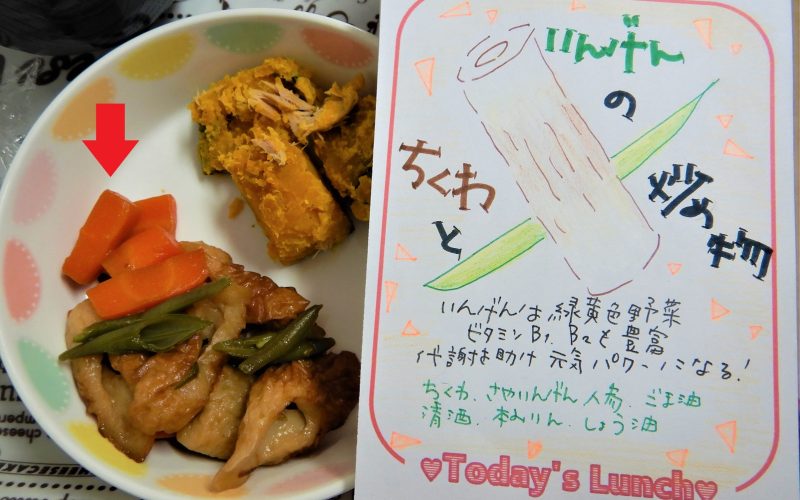 いんげん
の
ちくわ
と
炒め物
いんげんは、緑黄色野菜
ビタミンB1、B2も豊富
代謝を助け 元気パワーになる!
ちくわ、さやいんげん 人参、ごま油
清酒、本みりん、しょう油
Today's Lunch